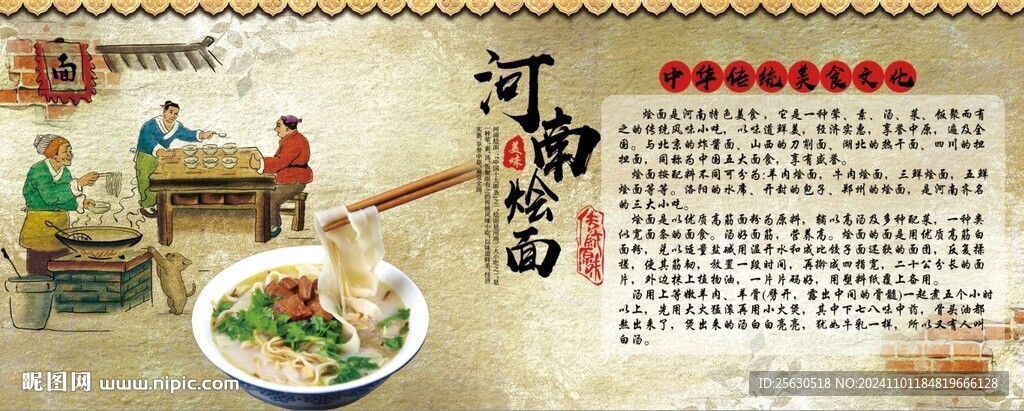 面
河南烩面
美味
传奇原味
中华传统美食文化
烩面是河南特色美食，它是一种荤、素、汤、菜、饭聚而有
之的传统风味小吃，以味道鲜美，经济实惠，享誉中原，遍及全
国。与北京的炸酱面、山西的刀削面、湖北的热干面、四川的担
担面，同称为中国五大面食，享有盛誉。
烩面按配料不同可分为:羊肉烩面，牛肉烩面，三鲜烩面，五鲜
烩面等等。洛阳的水席、开封的包子、郑州的烩面，是河南齐名
的三大小吃。
烩面是以优质高筋面粉为原料，辅以高汤及多种配菜，一种类
似宽面条的面食。汤好面筋，营养高。烩面的面是用优质高筋白
面粉，兑以适量盐碱用温开水和成比饺子面还软的面团，反复揉
搓，使其筋韧，放置一段时间，再擀成四指宽，二十公分长的面
片，外边抹上植物油，一片片码好，用塑料纸覆上备用。
汤用上等嫩羊肉、羊骨(劈开，露出中间的骨髓)一起煮五个小时
以上，先用大火猛滚再用小火煲，其中下七八味中药，骨头油都
熬出来了，煲出来的汤白白亮亮，犹如牛乳一样，所以又有人叫
白汤。
昵图网 www.nipic.com
ID:25630518 NO:20241101184819666128